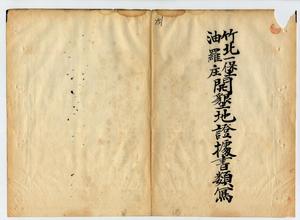 竹北一堡
油羅庄
開墾地證據書類寫